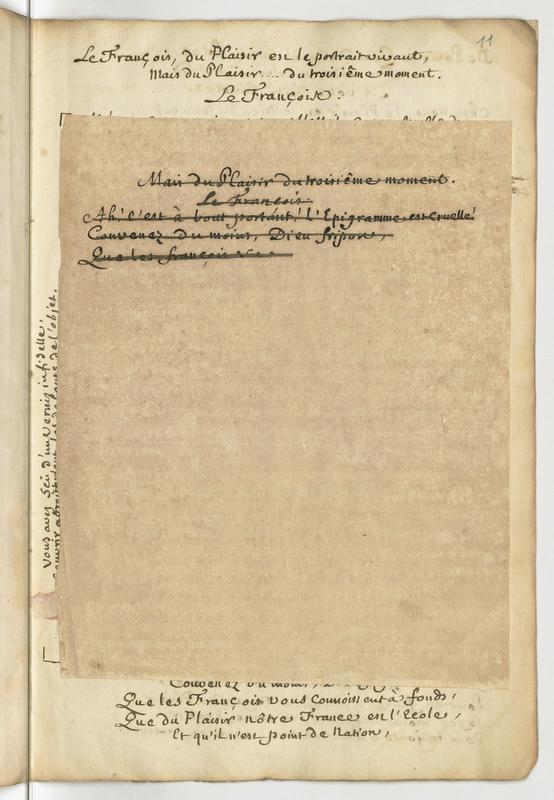 11
Le François, du Plaisir est le portrait vivant,
Mais du Plaisir... du troisiême moment.
Le François.
Mais du Plaisir du troisiême moment.
Le François.
Ah! c'est à bout portant! l'Epigramme est cruelle!
Convenez du moins, Dieu fripon,
Que les françois
Vous avez sçû d'un vernis infidelle,
de l'objet.
Convenez du moins,
Que les François vous connoissent à fonds,
Que du Plaisir nôtre France est l'Ecole,
Et qu'il n'est point de Nation,